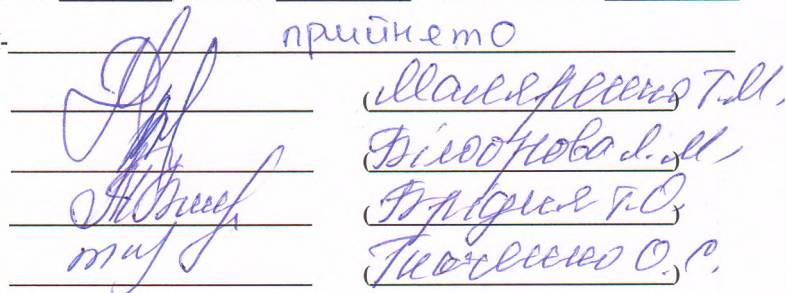 прийнято
(Маляренко Т.М.)
(Білоорова Л.М.)
(Брідня Т.О.)
(Ткаченко О.С.)